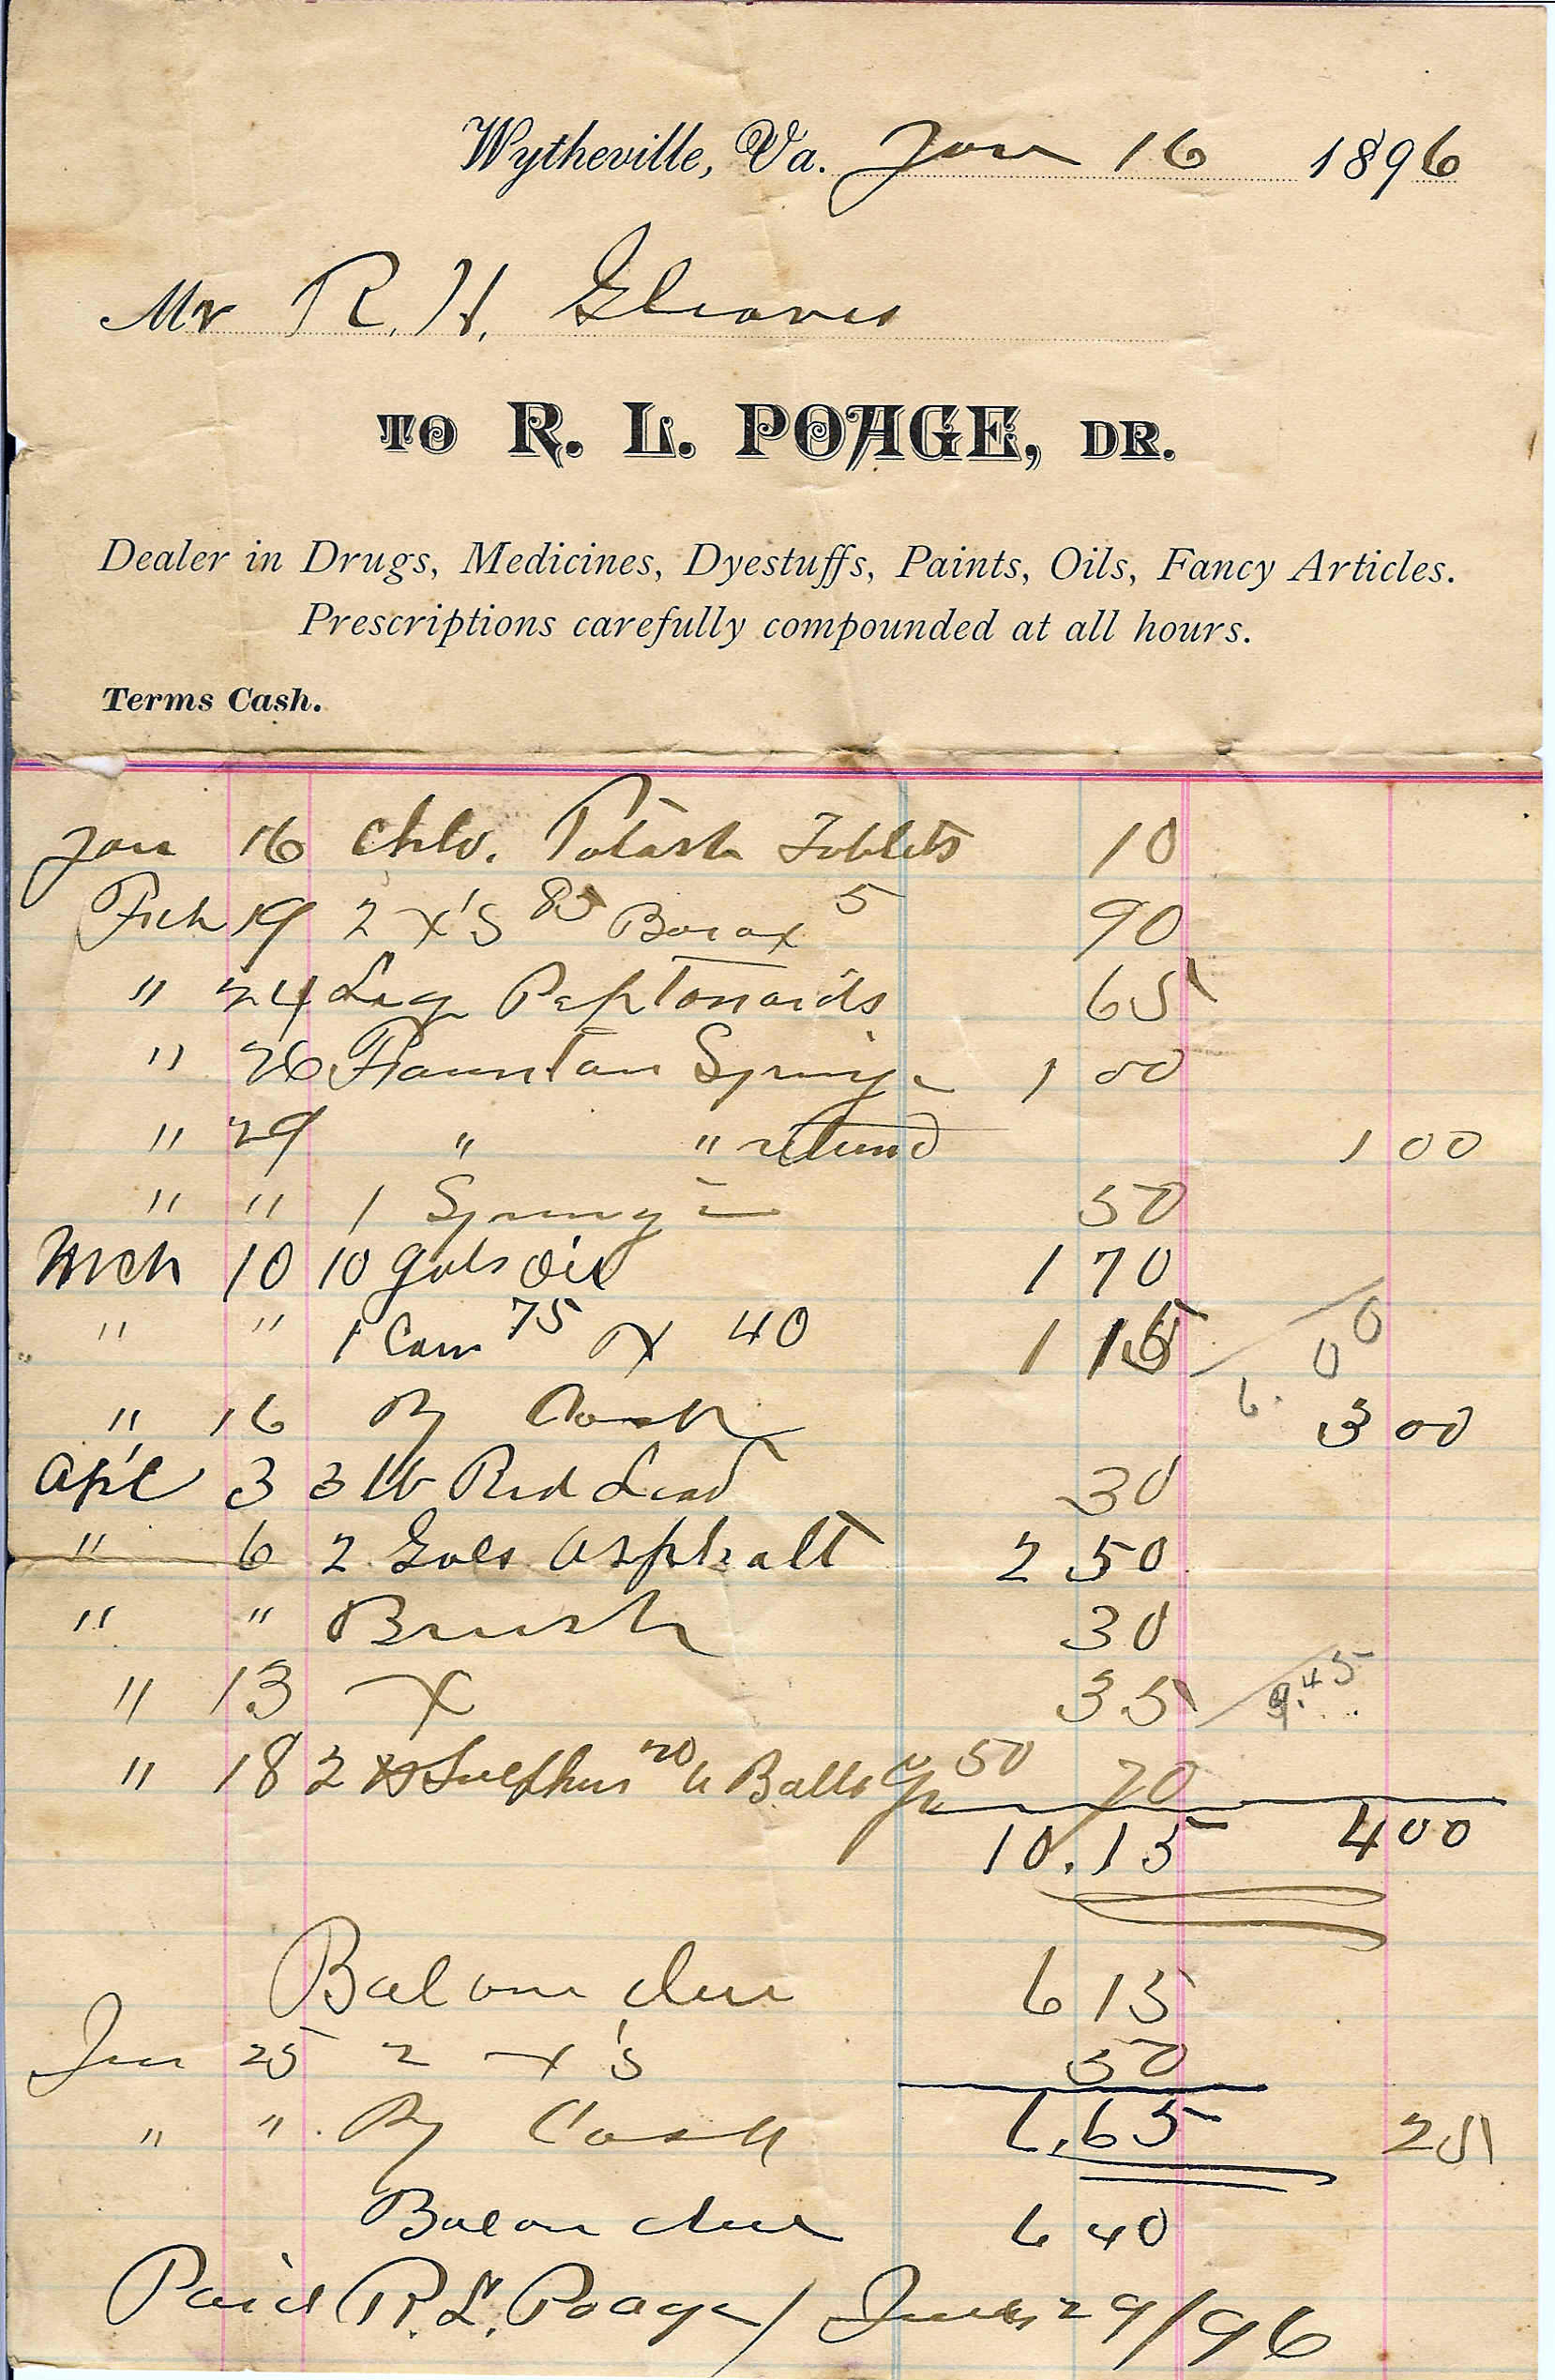 Wytheville, Va. Jan 16 1896
Mr R. H. Gleaves
TO R. L. POAGE, DR.
Dealer in Drugs, Medicines, Dyestuffs, Paints, Oils, Fancy Articles.
Prescriptions carefully compounded at all hours.
Terms Cash.
Jan 16 Chlo. Potash Tablets 10
Feb 19 2 X's 85 Borax 5 90
" 24 Liq Peptonoids 65
" 26 Fountain Syringe 1 00
" 29 " " returned 1 00
" " 1 Syringe 50
Mch 10 10 gals Oil 1 70
" " 1 Can 75 X 40 1 15
" 16 By Cash 3 00
Apl 3 3 lb Red Lead 30
" 6 2 Gals Asphalt 2 50
" " Brush 30
" 13 X 35 9.45
" 18 2 Sulphur 20 Balls 50 70
10.15 4 00
Balance due 6 15
Jun 25 2 X's 50
" " By Cash 6.65 25
Balance due 6 40
Paid R. L. Poage / June 29/96